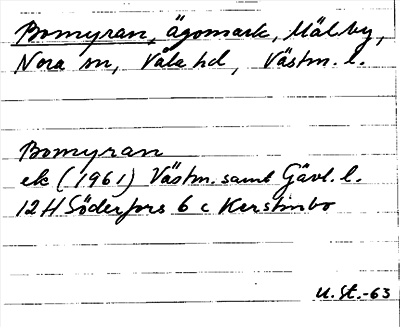 Bomyran, ägomark, Mälby,
Nora sn, Våla hd, Västm. l.
Bomyran
ek (1961) Västm. samt Gävl. l.
12H Söderfors 6 c Kerstinbo
U. St. -63